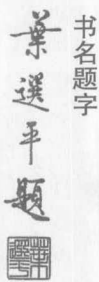 书名题字
葉選平題